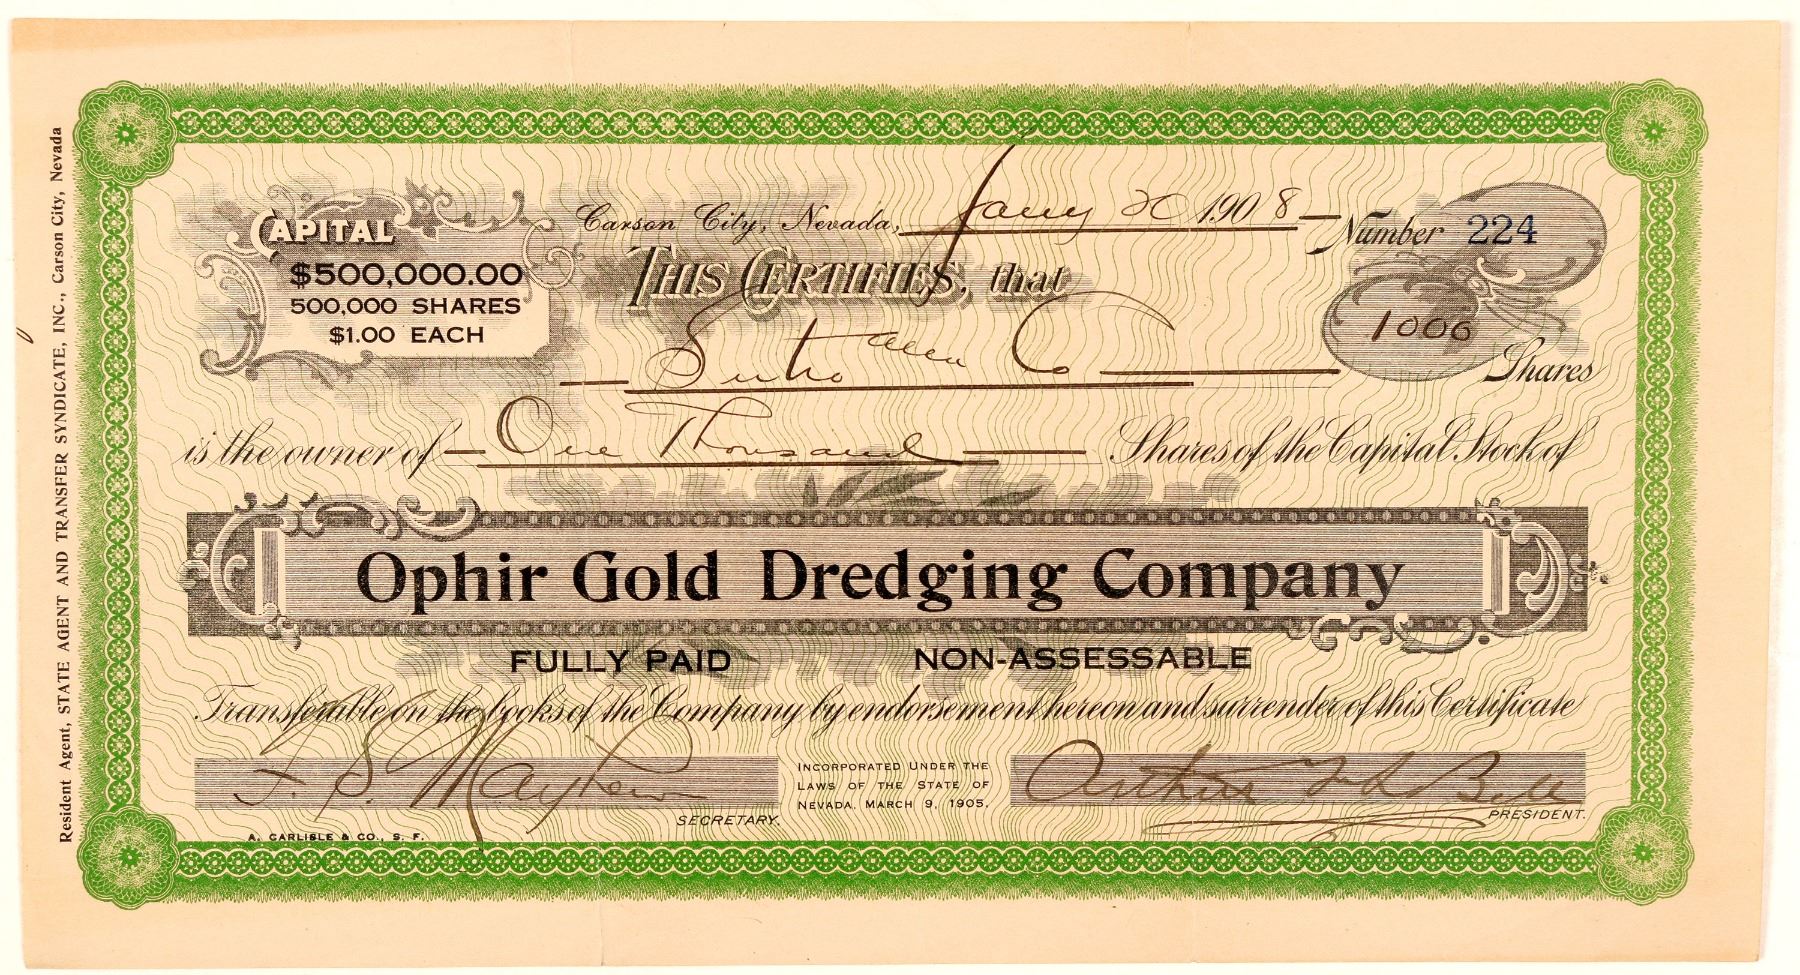 Resident Agent, STATE AGENT AND TRANSFER SYNDICATE, INC., Carson City, Nevada
CAPITAL
$500,000.00
500,000 SHARES
$1.00 EACH
Carson City, Nevada, Jany 20 1908
Number 224
THIS CERTIFIES, that
1000 Shares
Sutro & Co
is the owner of One Thousand Shares of the Capital Stock of
Ophir Gold Dredging Company
FULLY PAID NON-ASSESSABLE
Transferable on the books of the Company by endorsement hereon and surrender of this Certificate
F. S. Mayhew
SECRETARY.
INCORPORATED UNDER THE
LAWS OF THE STATE OF
NEVADA. MARCH 9, 1905.
Arthur Bell
PRESIDENT.
A. CARLISLE & CO., S. F.